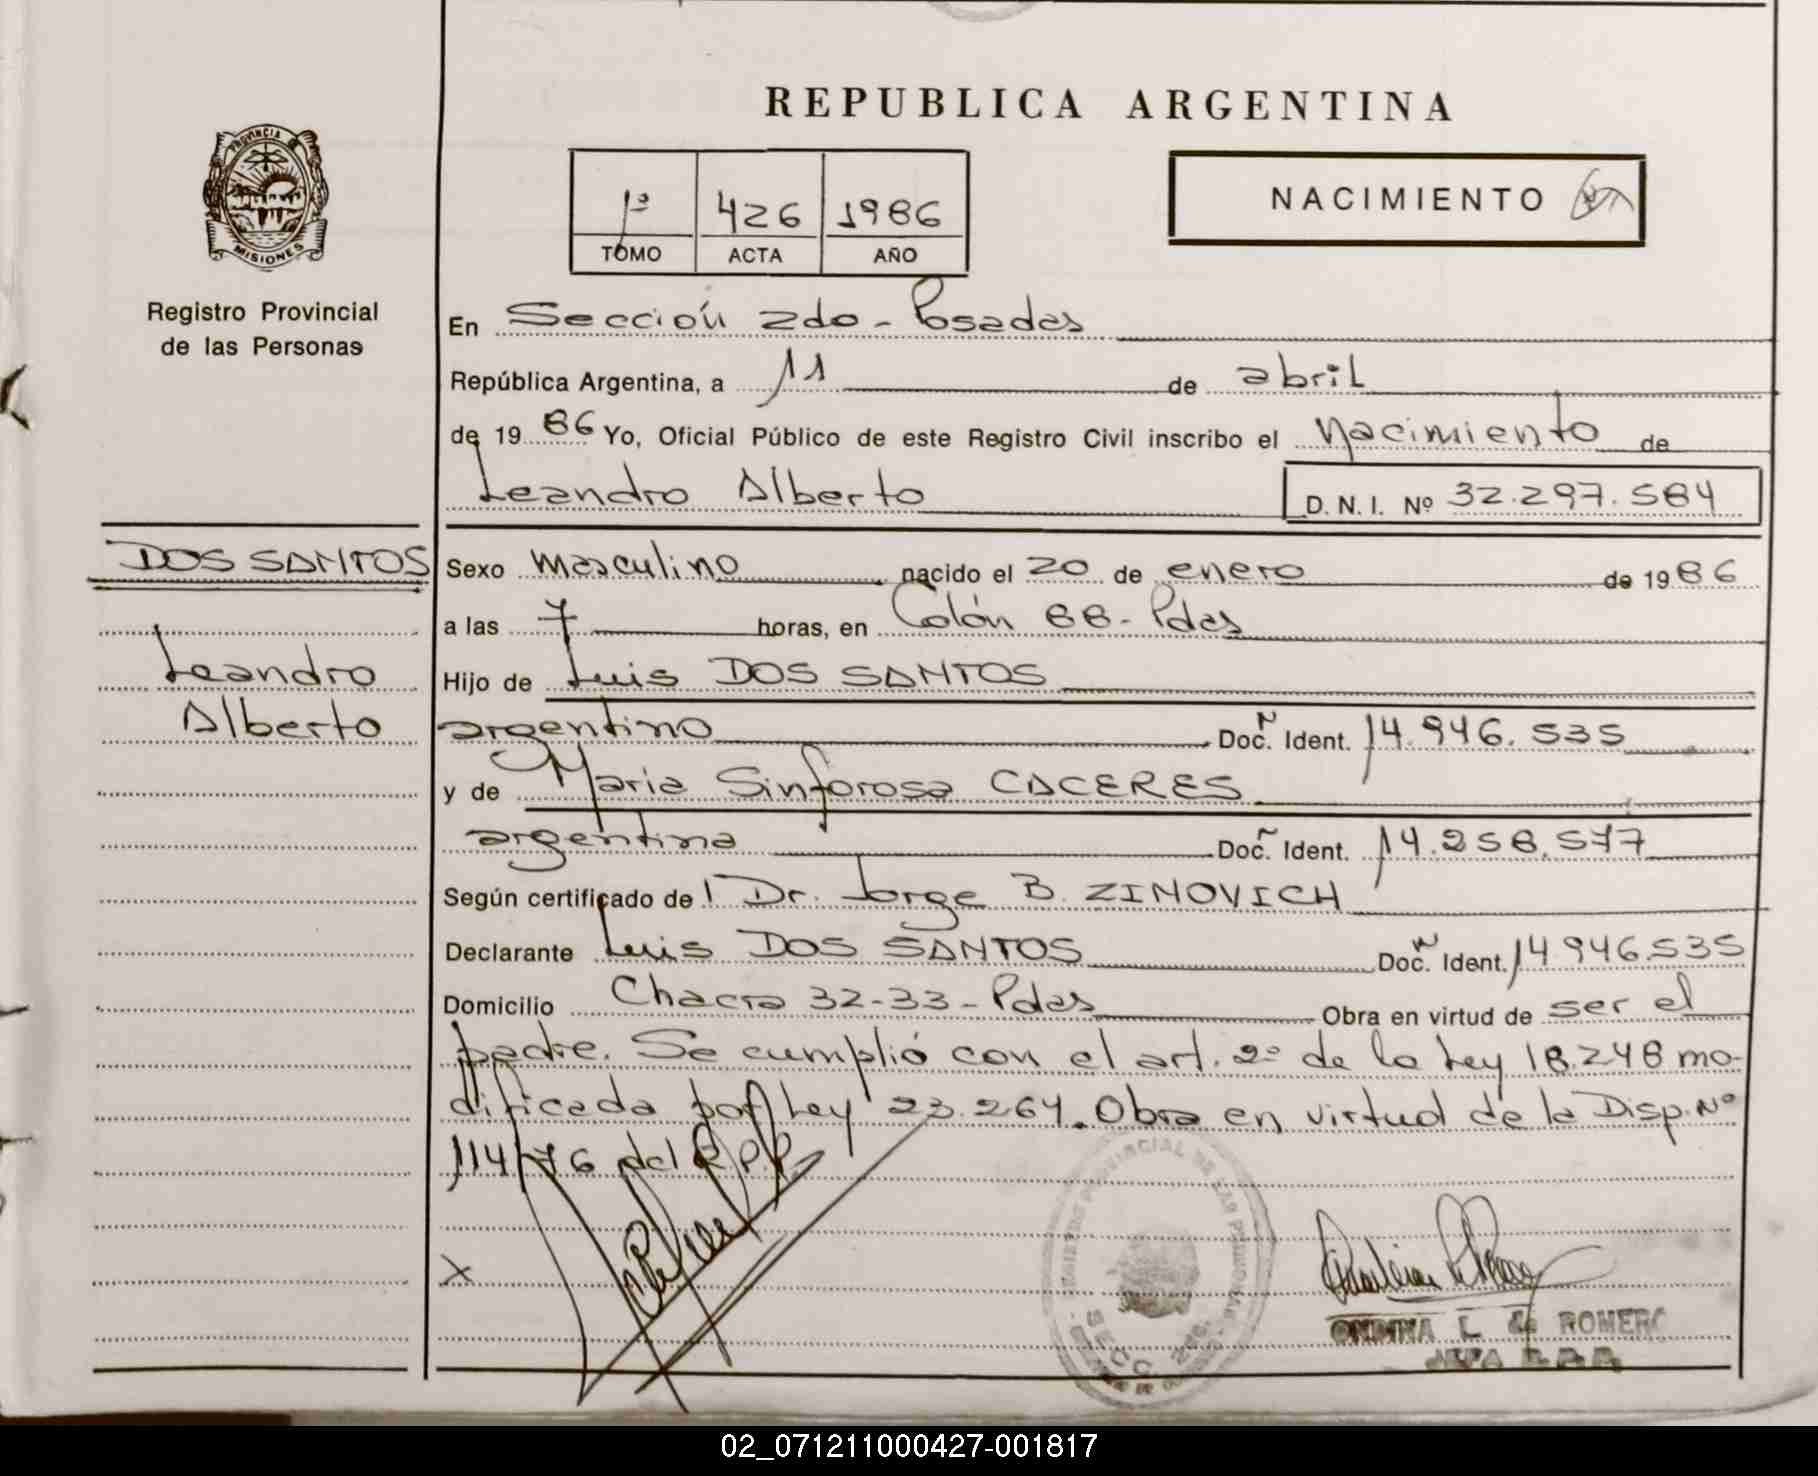 REPUBLICA ARGENTINA
PROVINCIA DE
MISIONES
Registro Provincial
de las Personas
1º 426 1986
TOMO ACTA AÑO
NACIMIENTO
En Sección 2da - Posadas
República Argentina, a 11 de abril
de 1986 Yo, Oficial Público de este Registro Civil inscribo el Nacimiento de
Leandro Alberto D. N. I. Nº 32.297.584
DOS SANTOS
Leandro
Alberto
Sexo masculino nacido el 20 de enero de 1986
a las 7 horas, en Colón 88 - Pdas
Hijo de Luis DOS SANTOS
argentino Doc. Ident. 14.946.535
y de Maria Sinforosa CACERES
argentina Doc. Ident. 14.258.577
Según certificado de l Dr. Jorge B. ZINOVICH
Declarante Luis DOS SANTOS Doc. Ident. 14.946.535
Domicilio Chacra 32-33 - Pdas Obra en virtud de ser el
padre. Se cumplió con el art. 2º de la Ley 18.248 mo-
dificada por Ley 23.264. Obra en virtud de la Disp. Nº
114/76 del R.P.P.
X
SECC. 2da.
ONDINA L. de ROMERO
JEFA R.P.P.
02_071211000427-001817